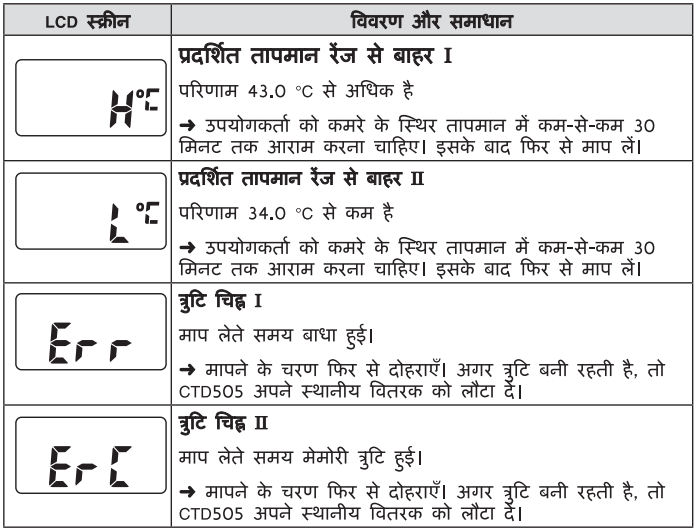 LCD स्क्रीन
विवरण और समाधान
H°C
प्रदर्शित तापमान रेंज से बाहर I
परिणाम 43.0 °C से अधिक है
➜ उपयोगकर्ता को कमरे के स्थिर तापमान में कम-से-कम 30
मिनट तक आराम करना चाहिए। इसके बाद फिर से माप लें।
L°C
प्रदर्शित तापमान रेंज से बाहर II
परिणाम 34.0 °C से कम है
➜ उपयोगकर्ता को कमरे के स्थिर तापमान में कम-से-कम 30
मिनट तक आराम करना चाहिए। इसके बाद फिर से माप लें।
Err
त्रुटि चिह्न I
माप लेते समय बाधा हुई।
➜ मापने के चरण फिर से दोहराएँ। अगर त्रुटि बनी रहती है, तो
CTD505 अपने स्थानीय वितरक को लौटा दें।
ErC
त्रुटि चिह्न II
माप लेते समय मेमोरी त्रुटि हुई।
➜ मापने के चरण फिर से दोहराएँ। अगर त्रुटि बनी रहती है, तो
CTD505 अपने स्थानीय वितरक को लौटा दें।